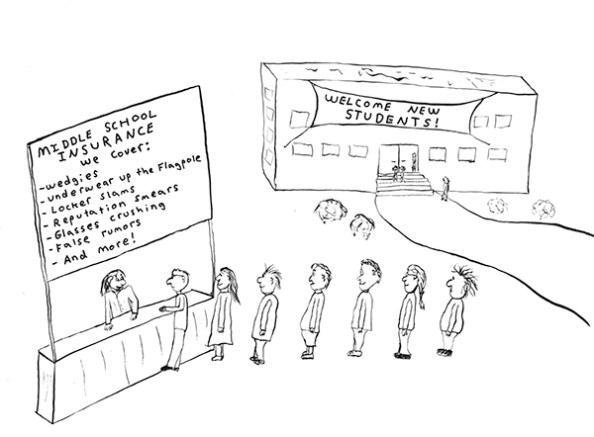 MIDDLE SCHOOL
INSURANCE
we cover:
-wedgies
-underwear up the Flagpole
-Locker slams
-Reputation Smears
-Glasses crushing
-False rumors
-And more!
WELCOME NEW
STUDENTS!